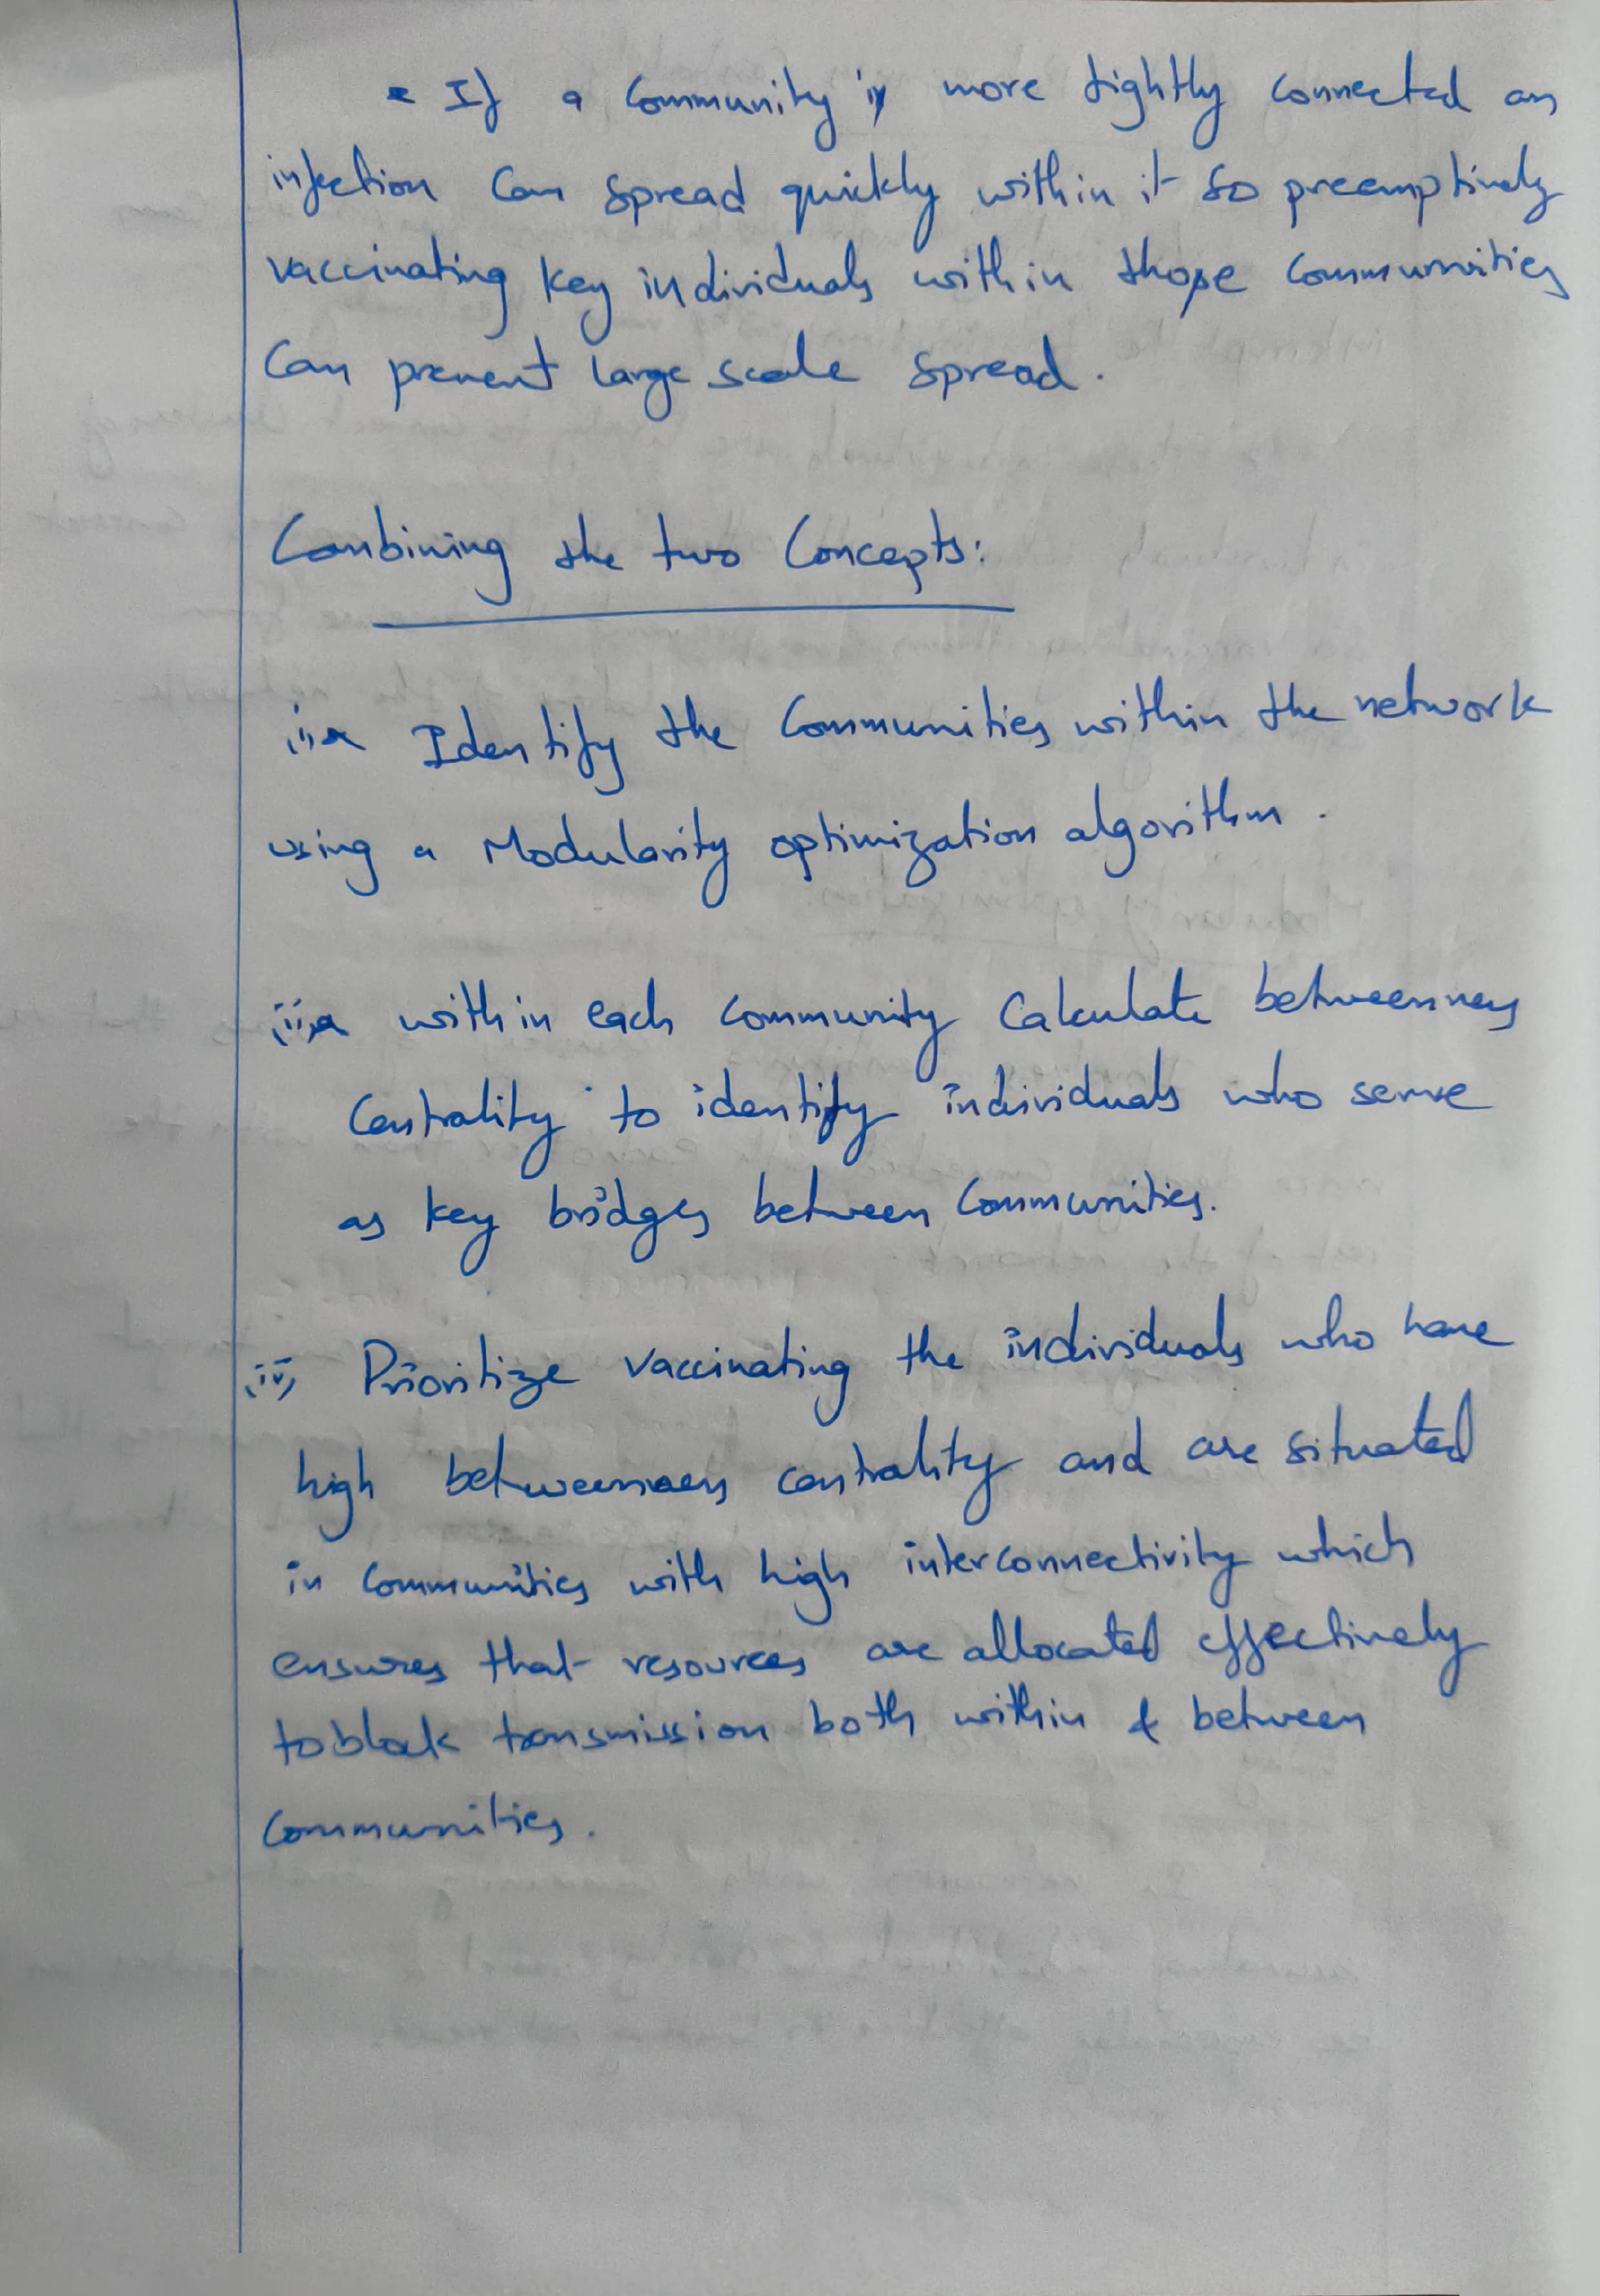 * If a community is more tightly connected an
infection can spread quickly within it so preemptively
vaccinating key individuals within those communities
can prevent large scale spread.
Combining the two Concepts:
Identify the communities within the network
using a Modularity optimization algorithm.
within each community calculate betweenness
centrality to identify individuals who serve
as key bridges between communities.
Prioritize vaccinating the individuals who have
high betweenness centrality and are situated
in communities with high interconnectivity which
ensures that resources are allocated effectively
to block transmission both within & between
communities.